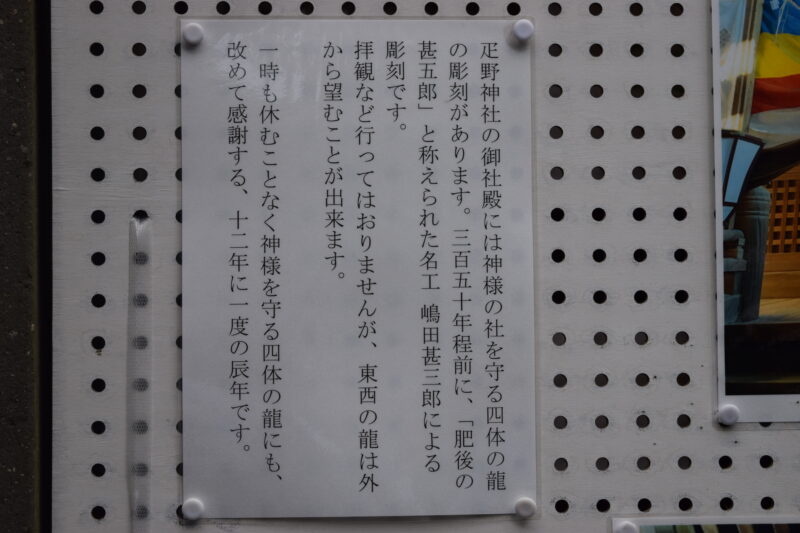 疋野神社の御社殿には神様の社を守る四体の龍
の彫刻があります。三百五十年程前に、「肥後の
甚五郎」と称えられた名工 嶋田甚三郎による
彫刻です。
拝観など行ってはおりませんが、東西の龍は外
から望むことが出来ます。
一時も休むことなく神様を守る四体の龍にも、
改めて感謝する、十二年に一度の辰年です。